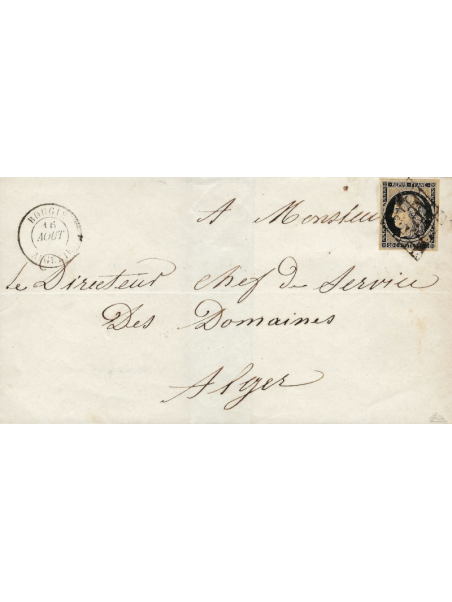 REPUB. FRANC.
BOUGIE
16
AOUT
A Monsieur
Le Directeur Chef du Service
Des Domaines
Alger